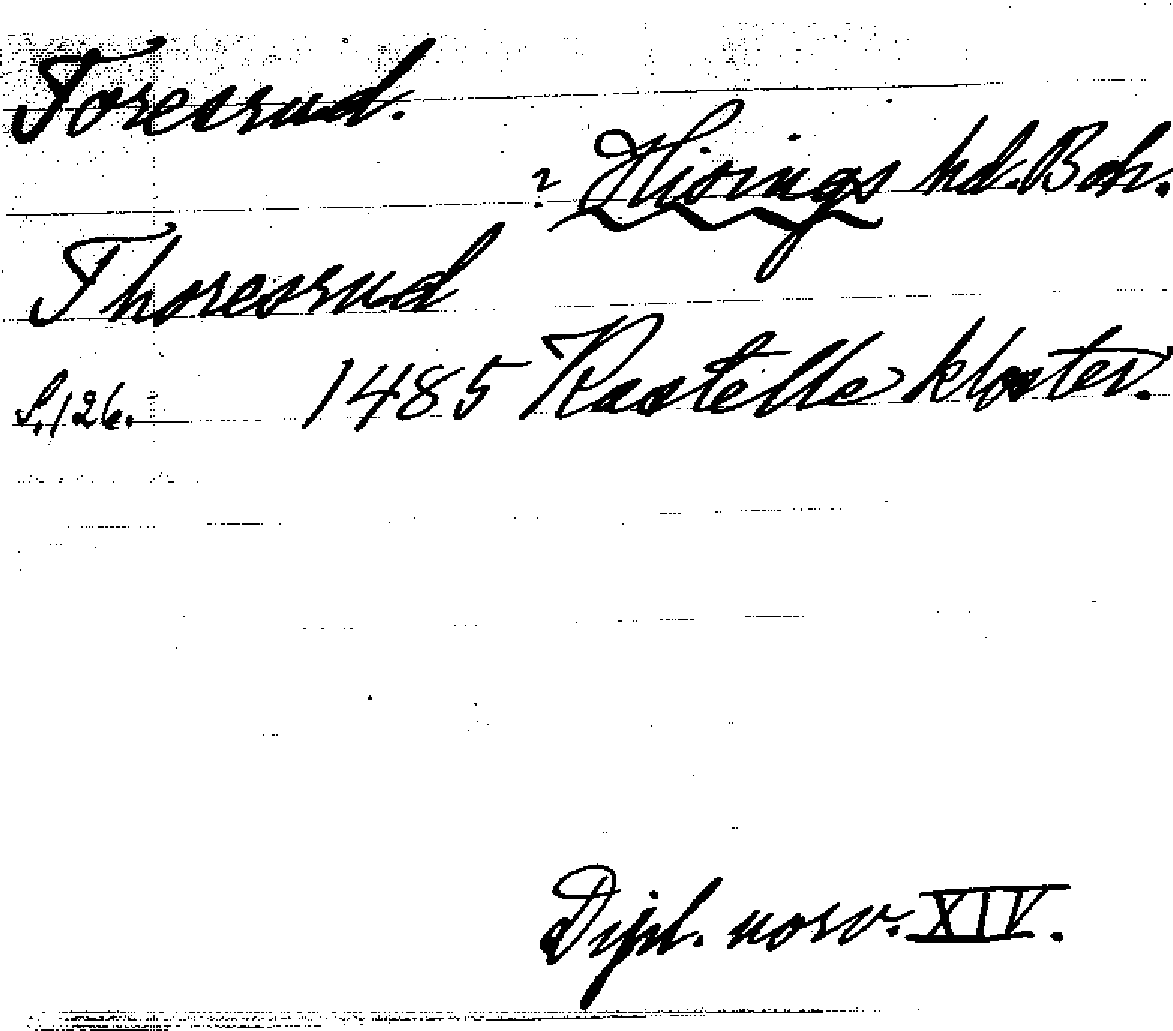 Toresrud.
? Hisings hd. Boh.
Thoresrud
S. 126. 1485 Kastelle kloster.
Dipl. norv. XIV.